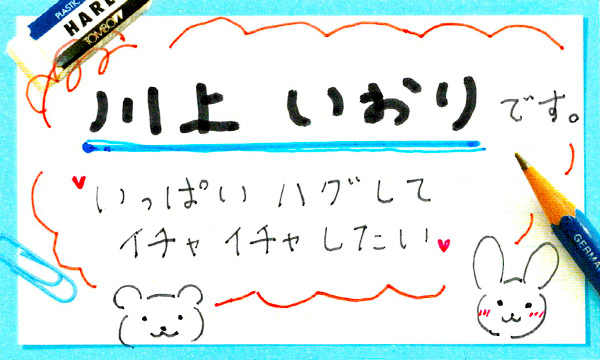 PLASTIC
HARD
TOMBOW
川上 いおり です。
いっぱい ハグして
イチャイチャしたい
GERMANY